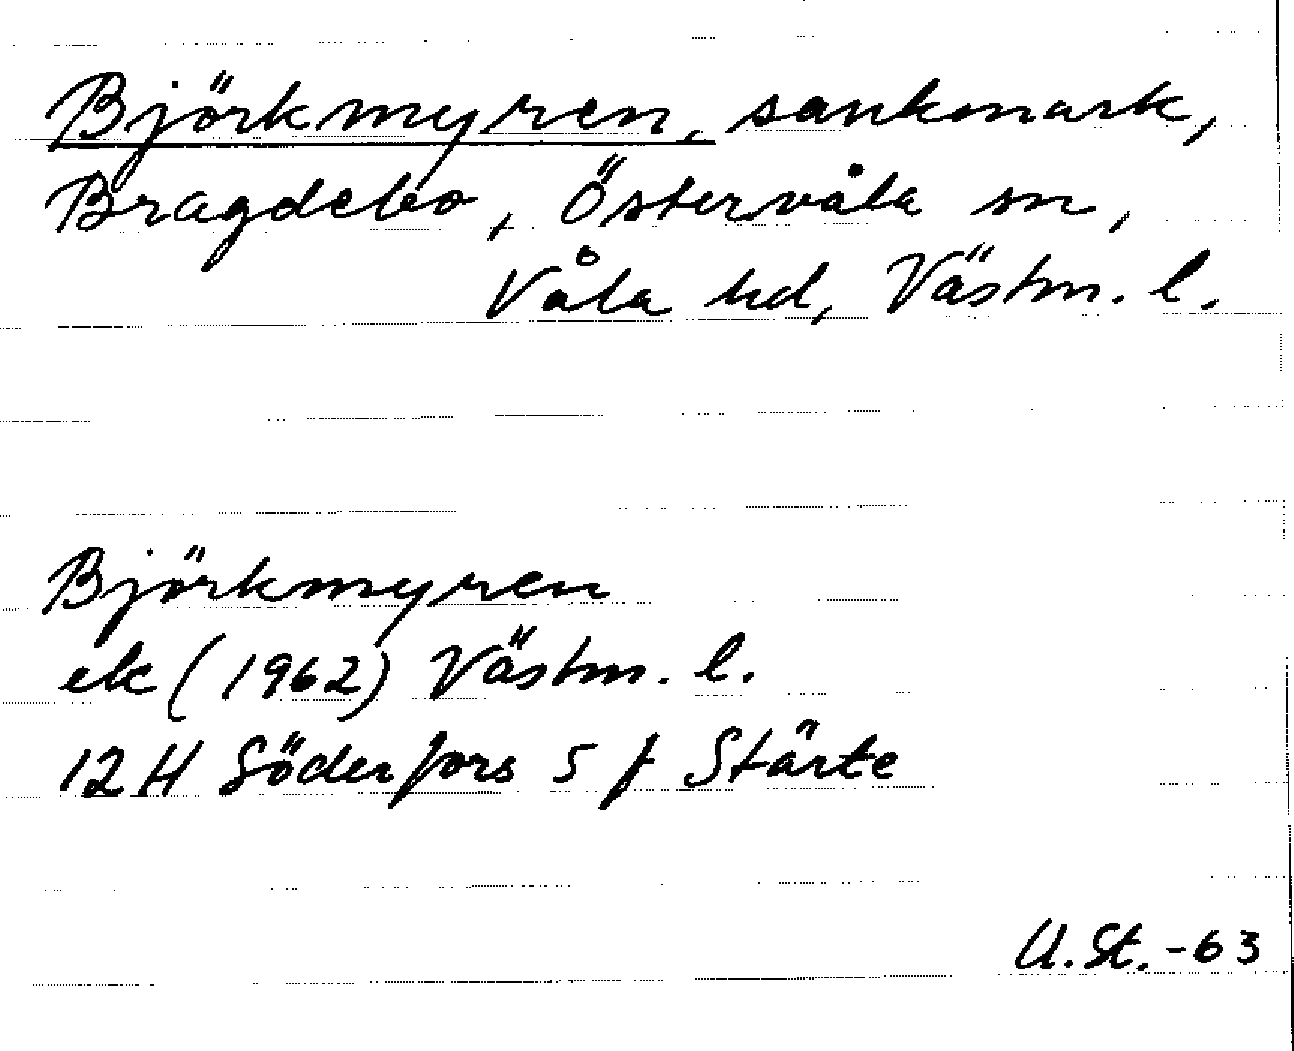 Björkmyren, sankmark,
Bragdebo, Östervåla sn,
Våla hd, Västm. l.
Björkmyren
ek (1962) Västm. l.
12 H Söderfors 5 f Stärte
U. St. -63